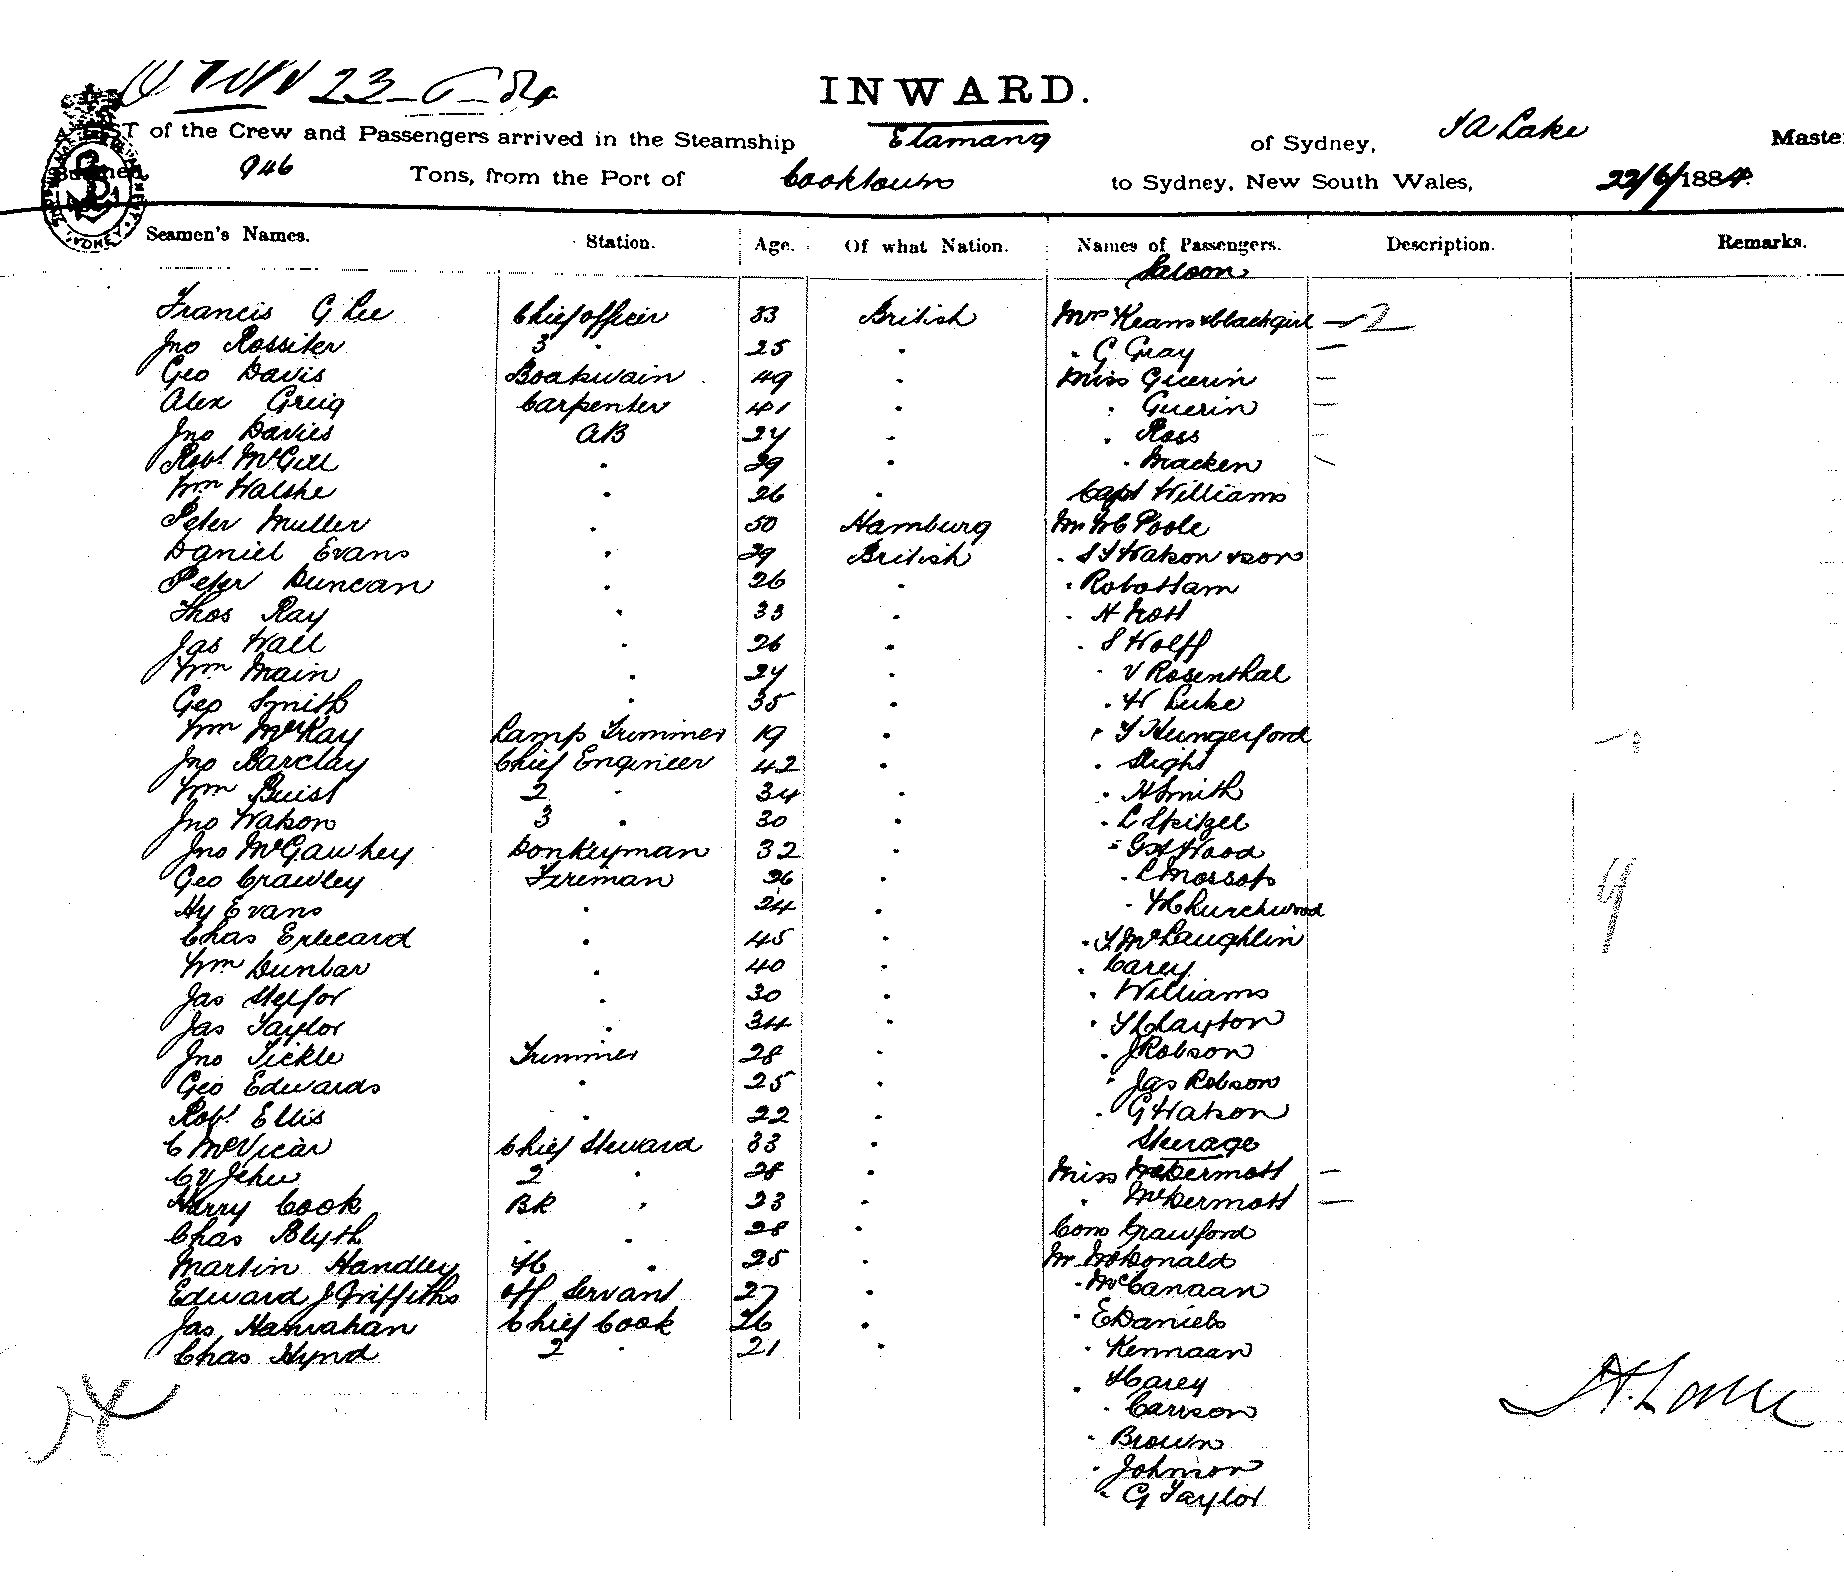 23-6-84
INWARD.
A LIST of the Crew and Passengers arrived in the Steamship Elamang of Sydney, S A Lake Master
Burthen, 946 Tons, from the Port of Cooktown to Sydney, New South Wales, 22/6/1884.
Seamen's Names. Station. Age. Of what Nation. Names of Passengers. Description. Remarks.
Saloon
Francis G Lee Chief officer 33 British Mrs Keams & blackgirl — 2
Jno Rossiter 3 " 25 " " G Gray —
Geo Davis Boatswain 49 " Miss Guerin —
Alex Greig Carpenter 41 " " Guerin —
Jno Davies AB 27 " " Ross —
Robt McGill " 29 " " Macken
Wm Walshe " 26 " Capt Williams
Peter Muller " 50 Hamburg Mr Poole
Daniel Evans " 29 British " Watson & son
Peter Duncan " 26 " " Robottam
Thos Ray " 33 " " H Nott
Jas Wall " 26 " " S Wolff
Wm Main " 27 " " V Rosenthal
Geo Smith " 35 " " W Luke
Wm McKay Lamp Trimmer 19 " " T Hungerford
Jno Barclay Chief Engineer 42 " " Slight
Wm Buist 2 " 34 " " H Smith
Jno Watson 3 " 30 " " L Spitzel
Jno McGawhey Donkeyman 32 " " Wood
Geo Crawley Fireman 26 " " L Mossop
Hy Evans " 24 " " Churchwood
Chas " 45 " " T McLaughlin
Wm Dunbar " 40 " " Carey
Jas " 30 " " Williams
Jas Taylor " 34 " " Clayton
Jno Tickle Trimmer 28 " " J Robson
Geo Edwards " 25 " " Jas Robson
Robt Ellis " 22 " " G Watson
Steerage
C McVicar Chief Steward 33 "
C V Jehu 2 " 28 " Miss McDermott —
Harry Cook BR " 23 " " McDermott —
Chas Blyth " " 28 " Cons Crawford
Martin Handley " 25 " Mr McDonald
Edward J Griffiths off Servant 27 " " McCanaan
Jas Hanrahan Chief Cook 26 " " E Daniels
Chas Hynd 2 " 21 " " Kennaan
" Carey
" Carrson
" Brown
" Johnson
" G Taylor